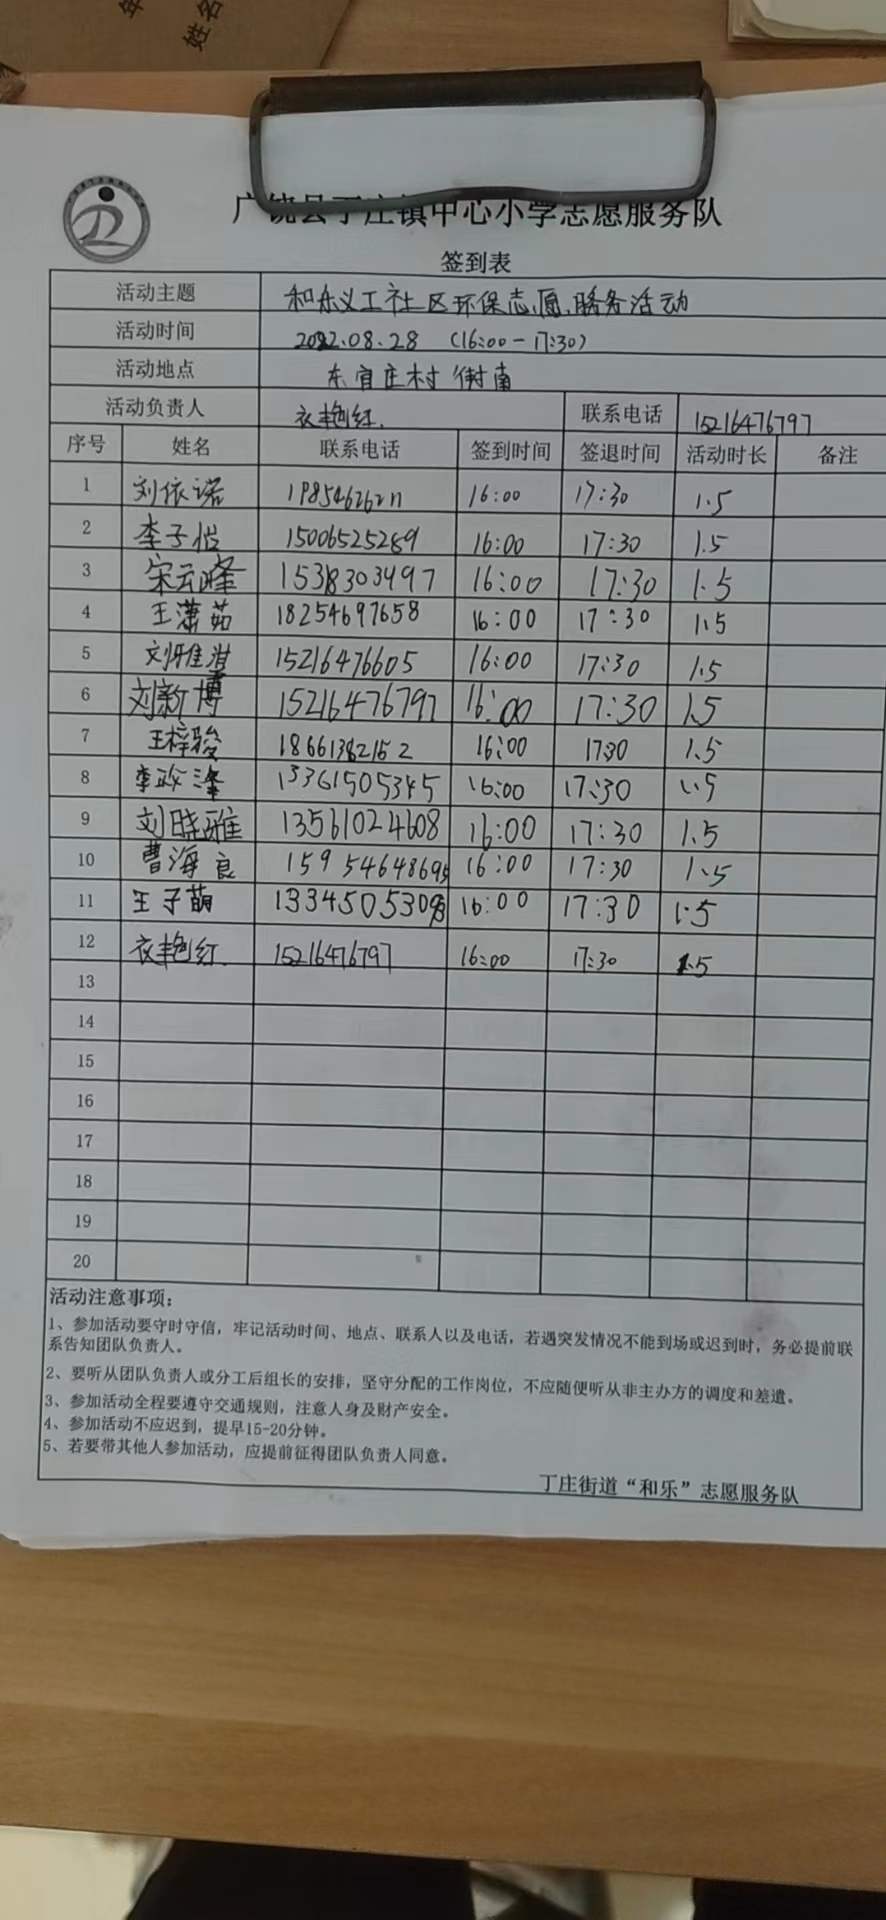 年
姓名
广饶县丁庄镇中心小学志愿服务队
签到表
活动主题 和乐义工社区环保志愿服务活动
活动时间 2022.08.28 (16:00-17:30)
活动地点 东官庄村 街南
活动负责人 衣艳红 联系电话 15216476797
序号 姓名 联系电话 签到时间 签退时间 活动时长 备注
1 刘依诺 16:00 17:30 1.5
2 李子恺 15006525289 16:00 17:30 1.5
3 宋云峰 1538303497 16:00 17:30 1.5
4 王潇茹 18254697658 16:00 17:30 1.5
5 刘雅淇 15216476605 16:00 17:30 1.5
6 刘新博 15216476797 16:00 17:30 1.5
7 王梓骏 18661382152 16:00 17:30 1.5
8 李政泽 13361505345 16:00 17:30 1.5
9 刘晓雅 13561024608 16:00 17:30 1.5
10 曹海良 15954648695 16:00 17:30 1.5
11 王子萌 16:00 17:30 1.5
12 衣艳红 15216476797 16:00 17:30 1.5
13
14
15
16
17
18
19
20
活动注意事项：
1、参加活动要守时守信，牢记活动时间、地点、联系人以及电话，若遇突发情况不能到场或迟到时，务必提前联
系告知团队负责人。
2、要听从团队负责人或分工后组长的安排，坚守分配的工作岗位，不应随便听从非主办方的调度和差遣。
3、参加活动全程要遵守交通规则，注意人身及财产安全。
4、参加活动不应迟到，提早15-20分钟。
5、若要带其他人参加活动，应提前征得团队负责人同意。
丁庄街道“和乐”志愿服务队